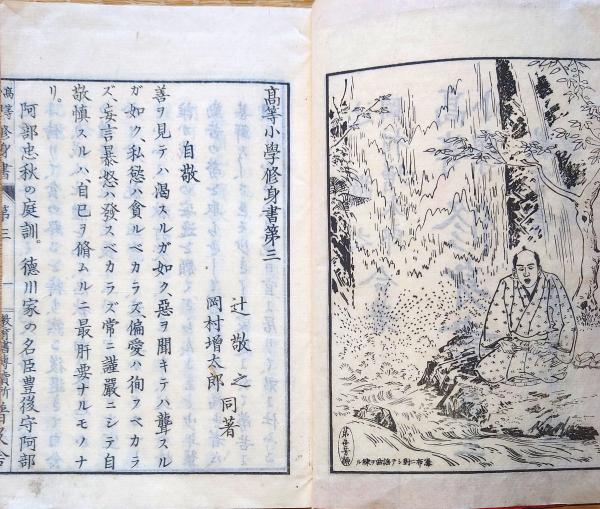 瀑布ニ對シテ謡曲ヲ練ル
高等小學修身書第三
辻敬之
岡村增太郎
同著
自敬
善ヲ見テハ渴スルガ如ク、惡ヲ聞キテハ聾スル
ガ如ク、私慾ハ貪ルベカラズ、偏愛ハ徇フベカラ
ズ、妄言暴怒ハ發スベカラズ、常ニ謹嚴ニシテ自
敬愼スルハ、自己ヲ脩ムルニ最肝要ナルモノナ
リ。
阿部忠秋の庭訓。德川家の名臣豊後守阿部
高等修身書
第三
一
教育書專賣所